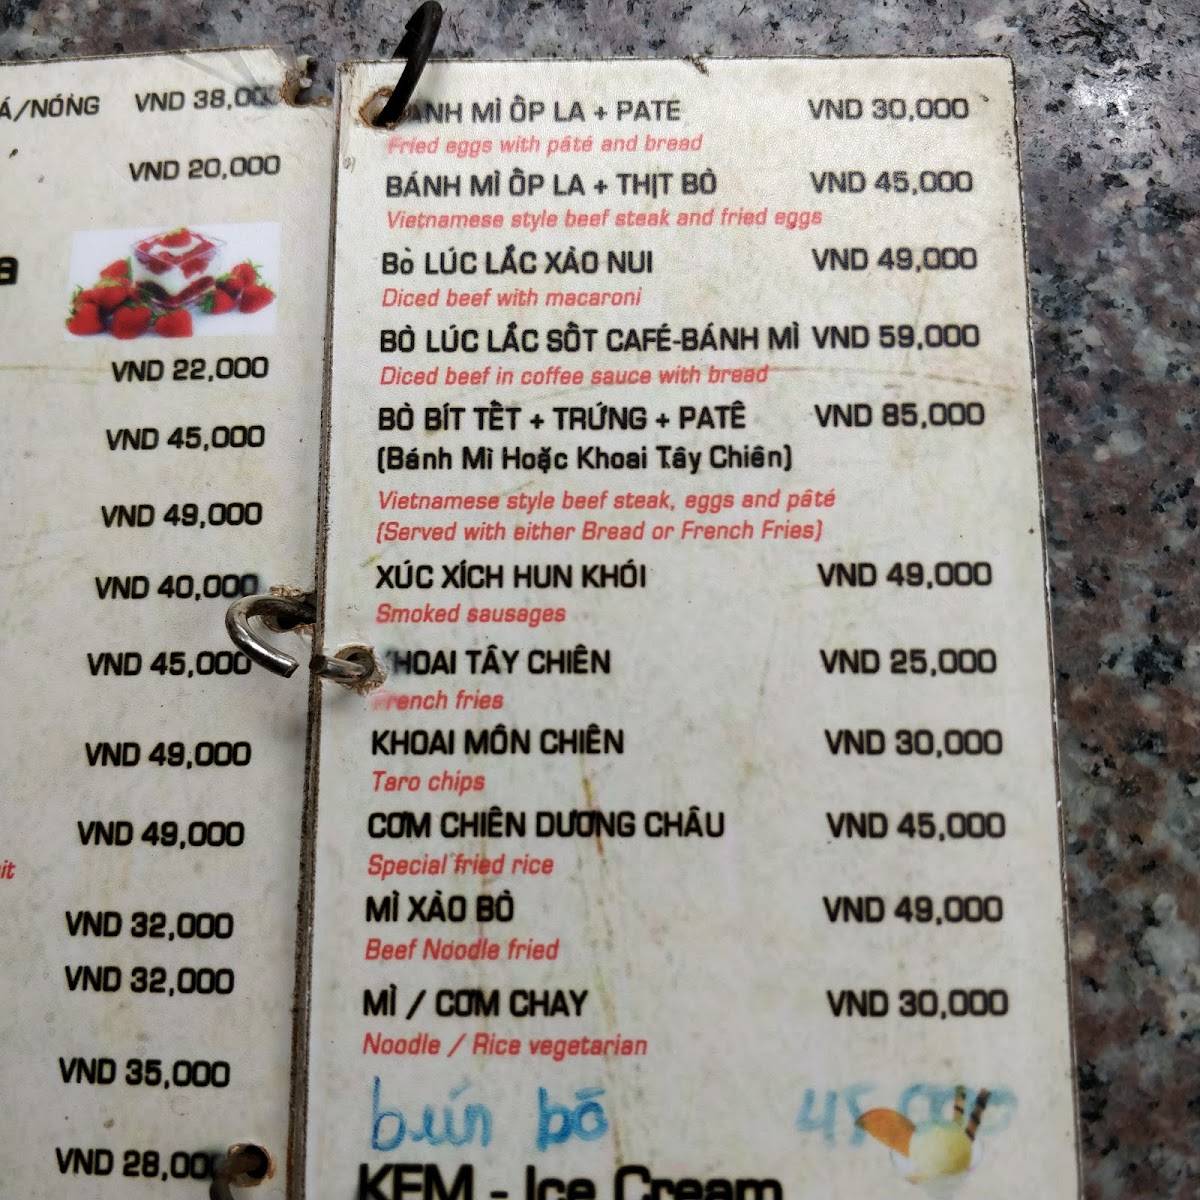 Á/NÓNG VND 38,00
VND 20,000
a
VND 22,000
VND 45,000
VND 49,000
VND 40,000
VND 45,000
VND 49,000
VND 49,000
it
VND 32,000
VND 32,000
VND 35,000
VND 28,00
BÁNH MÌ ỐP LA + PATE VND 30,000
Fried eggs with pâté and bread
BÁNH MÌ ỐP LA + THỊT BÒ VND 45,000
Vietnamese style beef steak and fried eggs
Bò LÚC LẮC XÀO NUI VND 49,000
Diced beef with macaroni
BÒ LÚC LẮC SỐT CAFÉ-BÁNH MÌ VND 59,000
Diced beef in coffee sauce with bread
BÒ BÍT TẾT + TRỨNG + PATÊ VND 85,000
(Bánh Mì Hoặc Khoai Tây Chiên)
Vietnamese style beef steak, eggs and pâté
(Served with either Bread or French Fries)
XÚC XÍCH HUN KHÓI VND 49,000
Smoked sausages
KHOAI TÂY CHIÊN VND 25,000
French fries
KHOAI MÔN CHIÊN VND 30,000
Taro chips
CƠM CHIÊN DƯƠNG CHÂU VND 45,000
Special fried rice
MÌ XÀO BÒ VND 49,000
Beef Noodle fried
MÌ / CƠM CHAY VND 30,000
Noodle / Rice vegetarian
bún bò 45.000
KEM - Ice Cream